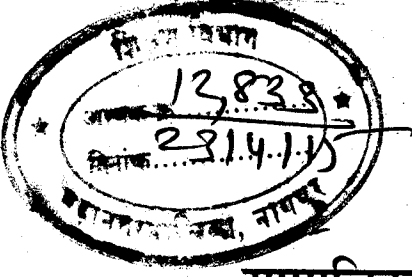 शिक्षण विभाग
आवक क्र. 12,839
दिनांक 29/4/11
महानगरपालिका, नागपुर